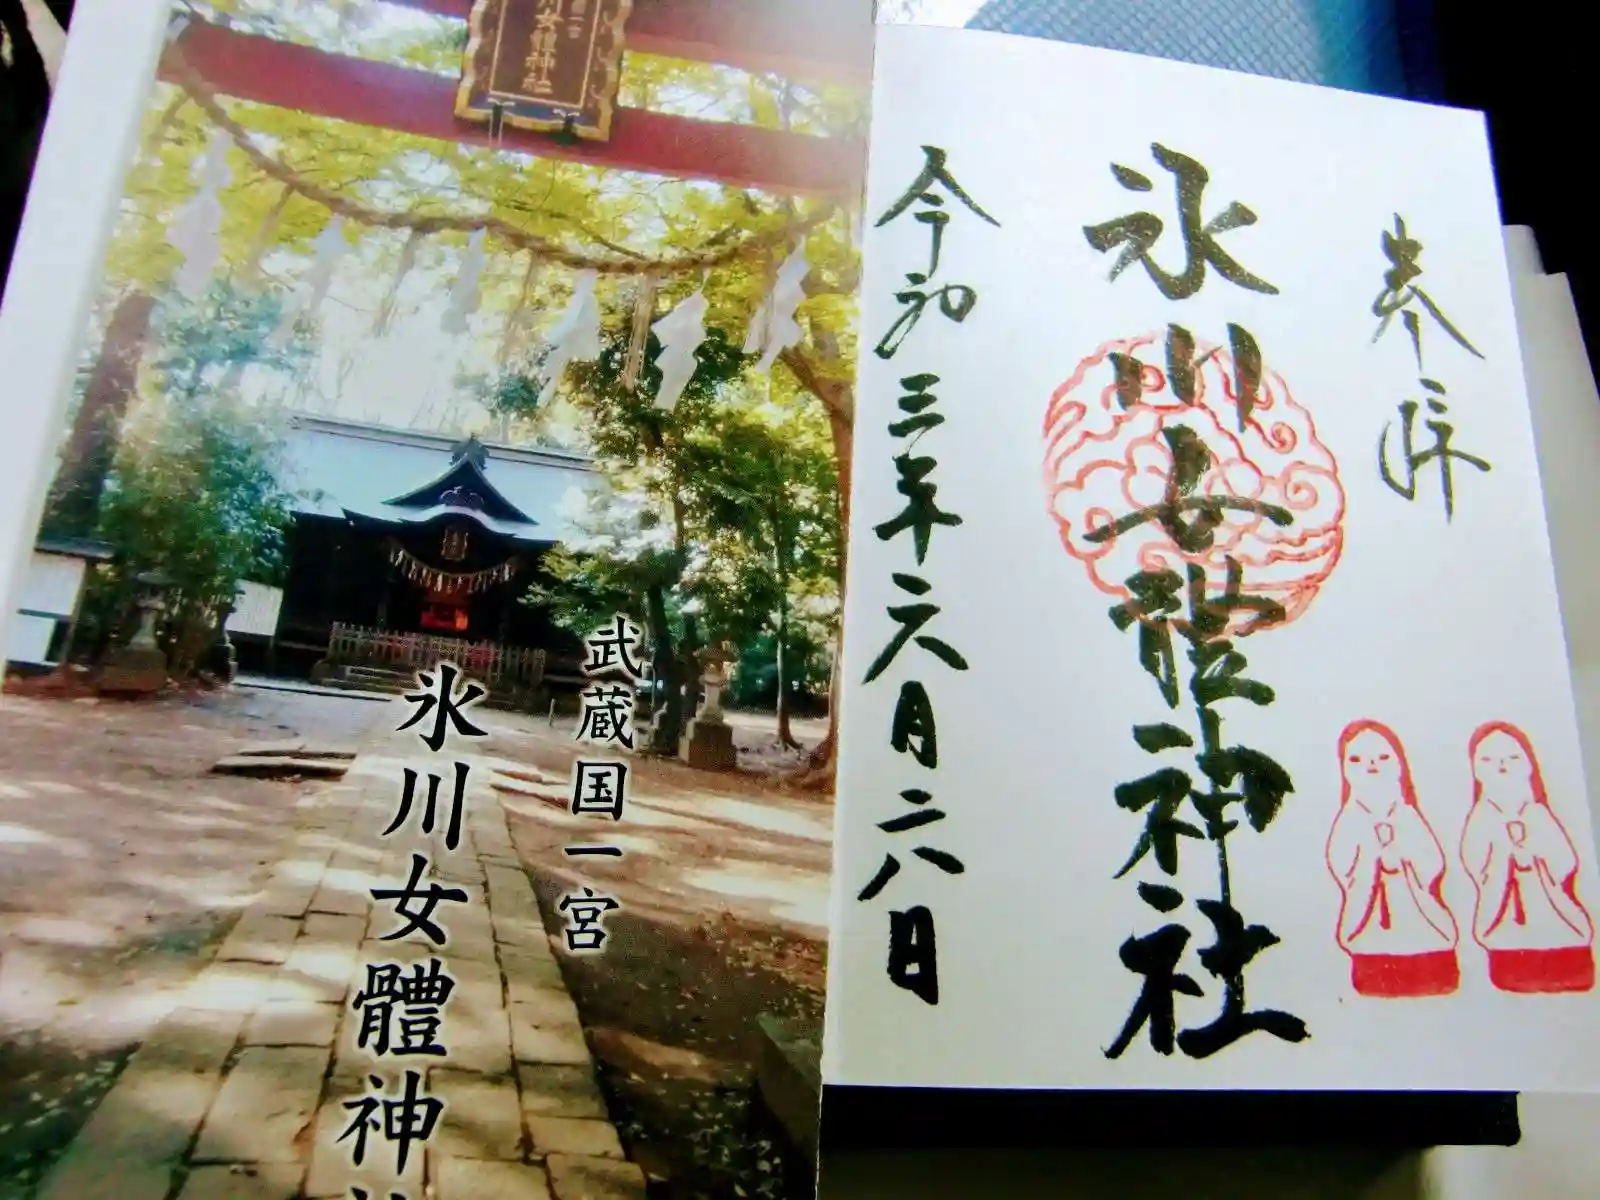 川女體神社
武蔵国一宮
氷川女體神社
奉拝
氷川女體神社
令和三年六月二八日